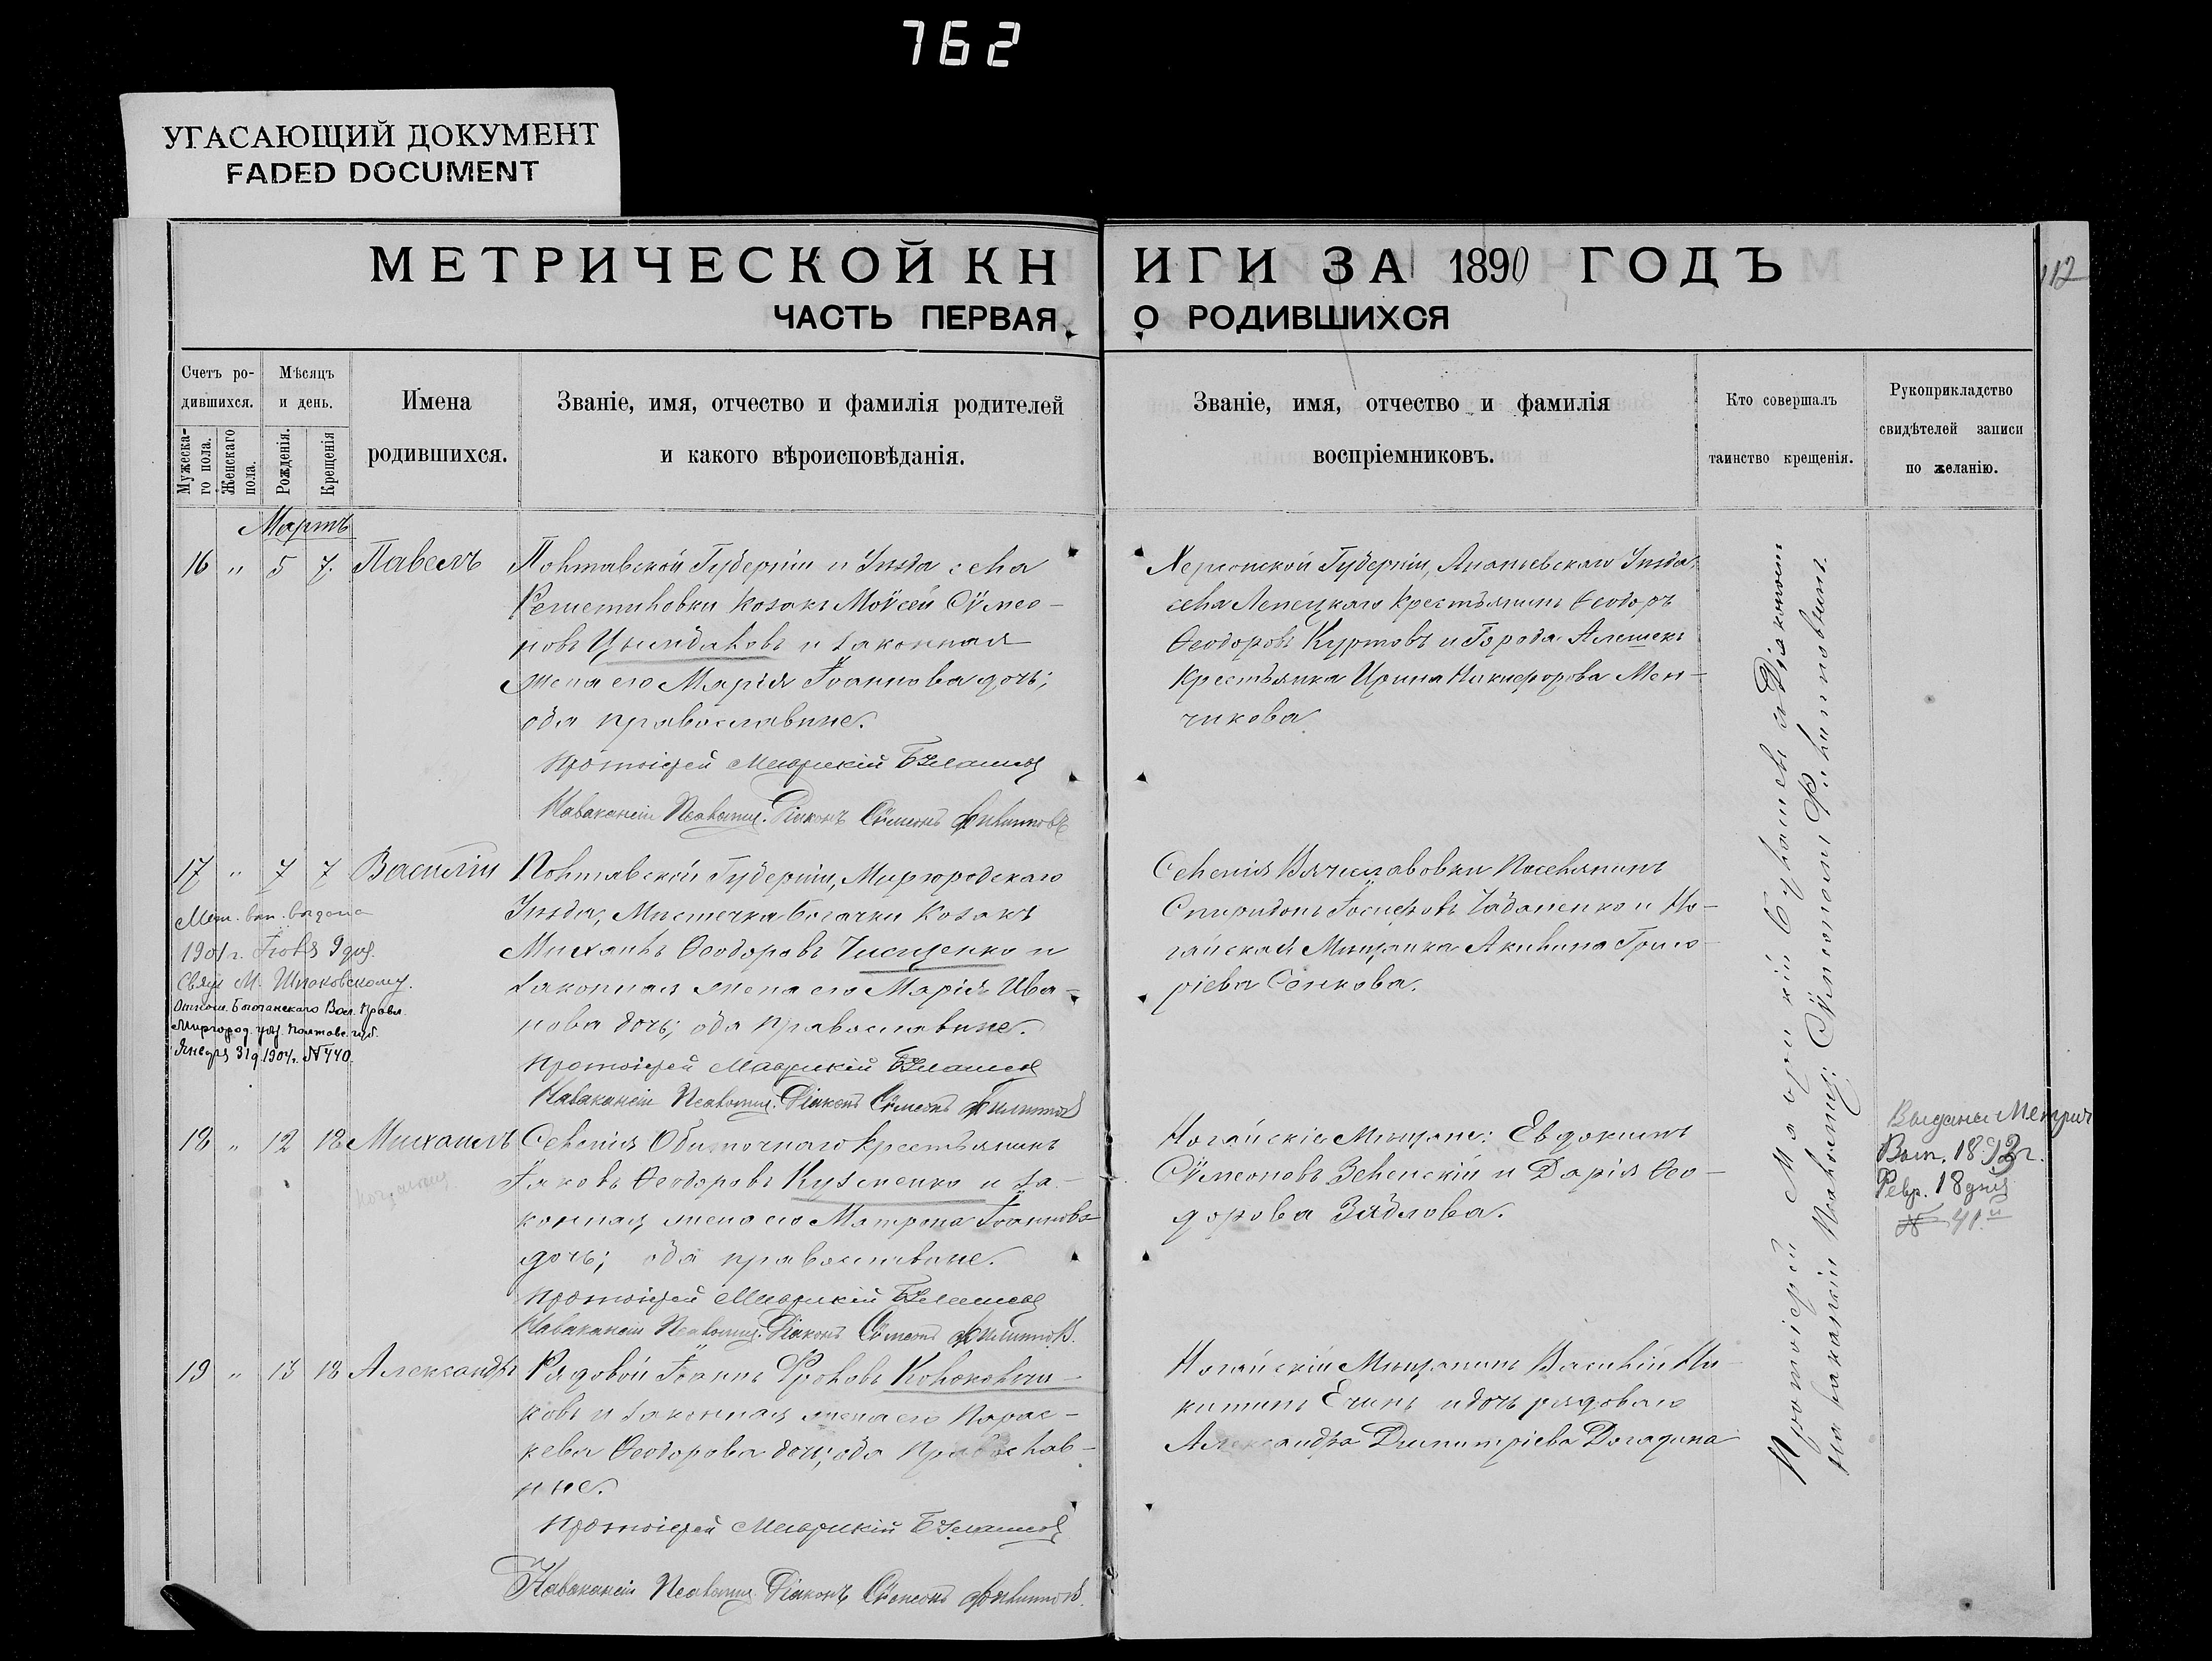 762
УГАСАЮЩИЙ ДОКУМЕНТ
FADED DOCUMENT
МЕТРИЧЕСКОЙ КН
ИГИ ЗА 1890 ГОДЪ
112
ЧАСТЬ ПЕРВАЯ,
О РОДИВШИХСЯ
Счетъ ро-
дившихся.
Мужеска-
го пола.
Женскаго
пола.
Мѣсяцъ
и день.
Рожденія.
Крещенія
Имена
родившихся.
Званіе, имя, отчество и фамилія родителей
и какого вѣроисповѣданія.
Званіе, имя, отчество и фамилія
воспріемниковъ.
Кто совершалъ
таинство крещенія.
Рукоприкладство
свидѣтелей записи
по желанію.
Мартъ
16 " 5 7. Павелъ
Полтавской Губерніи и Уѣзда села
Решетиловки Козакъ Моѵсей Сѵмео-
новъ и законная
жена его Марія Іоаннова дочь;
оба православные.
Протоіерей Маврикій
На вакансіи Псаломщ. Діаконъ Сѵмеонъ Филипповъ
Херсонской Губерніи, Ананьевскаго Уѣзда
села Крестьянинъ Ѳеодоръ
Ѳеодоровъ Куртовъ и Города Алешекъ
Крестьянка Ирина Никифорова Мен-
чикова
17 " 7 7 Василій
Мет. вып. выдана
1901 г.
Свящ. М.
Отнош. Богачанскаго Вол. Правл.
Миргород. уѣз. Полтавс. губ.
Января 31 д. 1904 г. № 440.
Полтавской Губерніи, Миргородскаго
Уѣзда, Мѣстечка Богачки Козакъ
Михаилъ Ѳеодоровъ Чисценко и
законная жена его Марія Ива-
нова дочь; оба православные.
Протоіерей Маврикій
На вакансіи Псаломщ. Діаконъ Сѵмеонъ Филипповъ
Селенія Вячеславовки Поселянинъ
Спиридонъ Іосифовъ Чабаненко и Но-
гайская Мѣщанка Акилина Григо-
ріева Сенкова.
18 " 12 18 Михаилъ
Селенія Обиточнаго Крестьянинъ
Іяковъ Ѳеодоровъ Кузменко и за-
конная жена его Матрона Іоаннова
дочь; оба православные.
Протоіерей Маврикій
На вакансіи Псаломщ. Діаконъ Сѵмеонъ Филипповъ.
Ногайскіе Мѣщане: Евдокимъ
Сѵмеоновъ Зеленскій и Дарія Ѳео-
дорова
Выданы Метрич
Вып. 1892 г.
Февр. 18 дня
№ 41.й
19 " 13 18 Александръ
Рядовой Іоаннъ Фроловъ Колокольчи-
ковъ и законная жена его Парас-
кева Ѳеодорова дочь; оба Православ-
ные.
Протоіерей Маврикій
На вакансіи Псаломщ. Діаконъ Сѵмеонъ Филипповъ.
Ногайскій Мѣщанинъ Василій Ни-
китинъ и дочь рядоваго
Александра Димитріева Догадина
Протоіерей Маврикій съ Діакономъ
На вакансіи Псаломщ. Сѵмеономъ Филипповымъ.